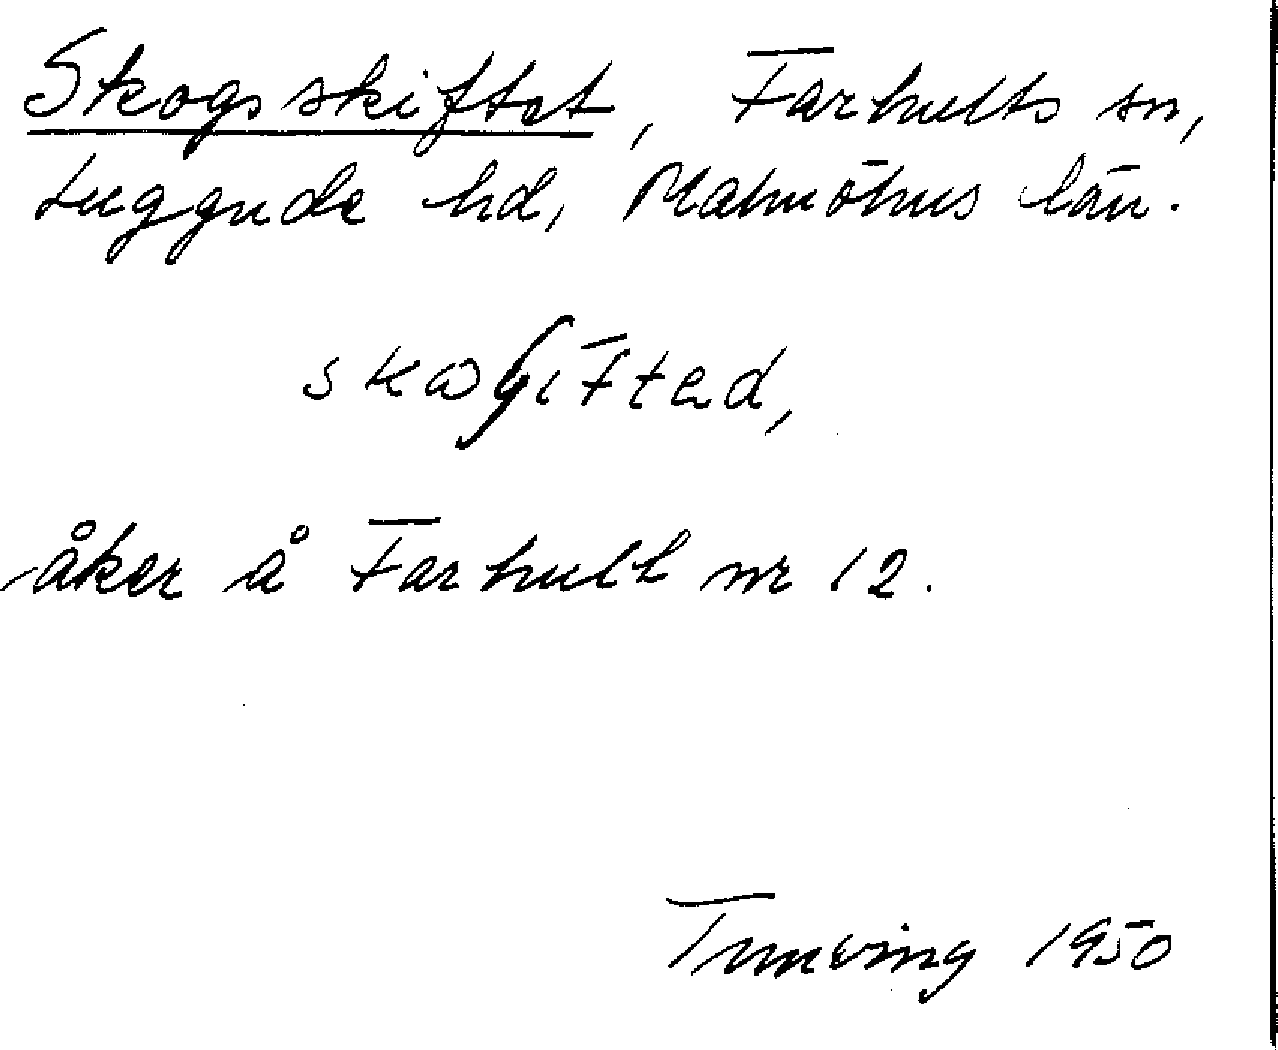 Skogsskiftet, Farhults sn,
Luggude hd, Malmöhus län.
åker å Farhult nr 12.
Tunving 1950